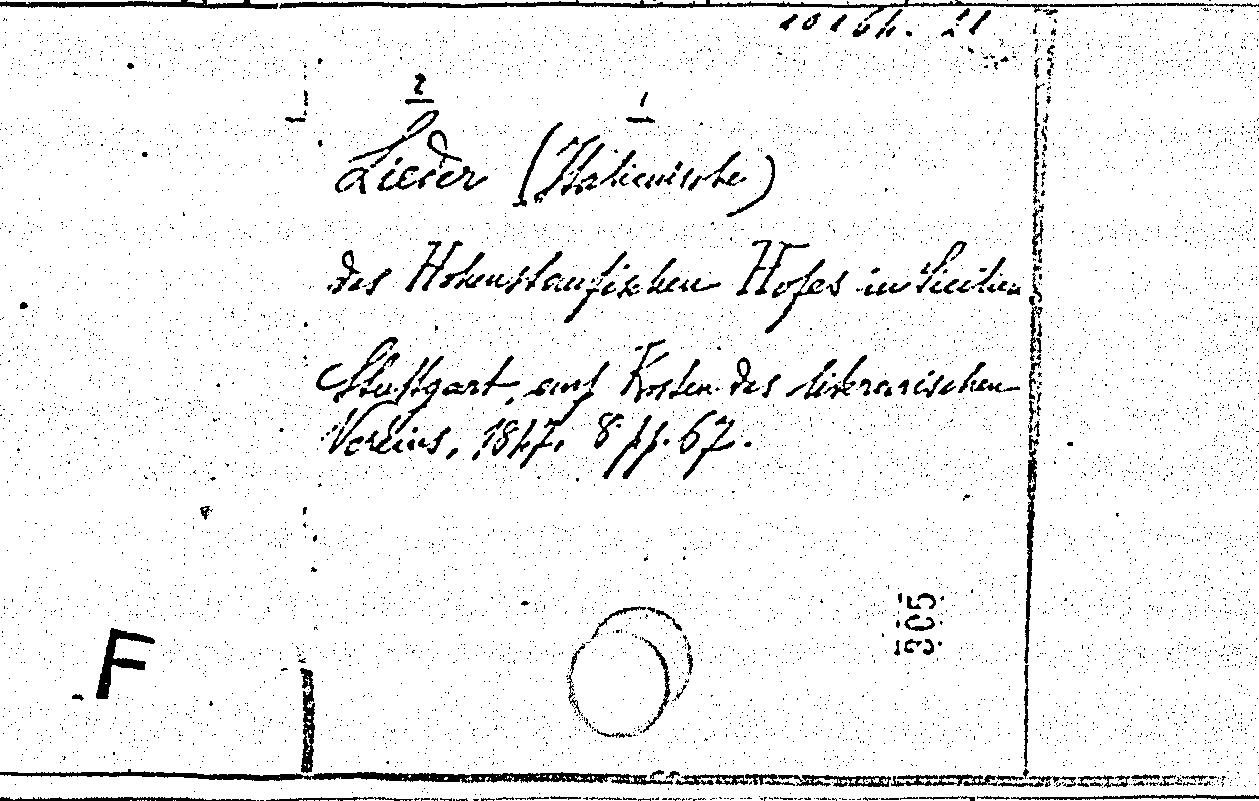 2 1
Lieder (Italienische)
des Hohenstaufischen Hofes in Sicilien
Stuttgart, auf Kosten des literarischen
Vereins, 1847. 8 pp. 67.
305
F